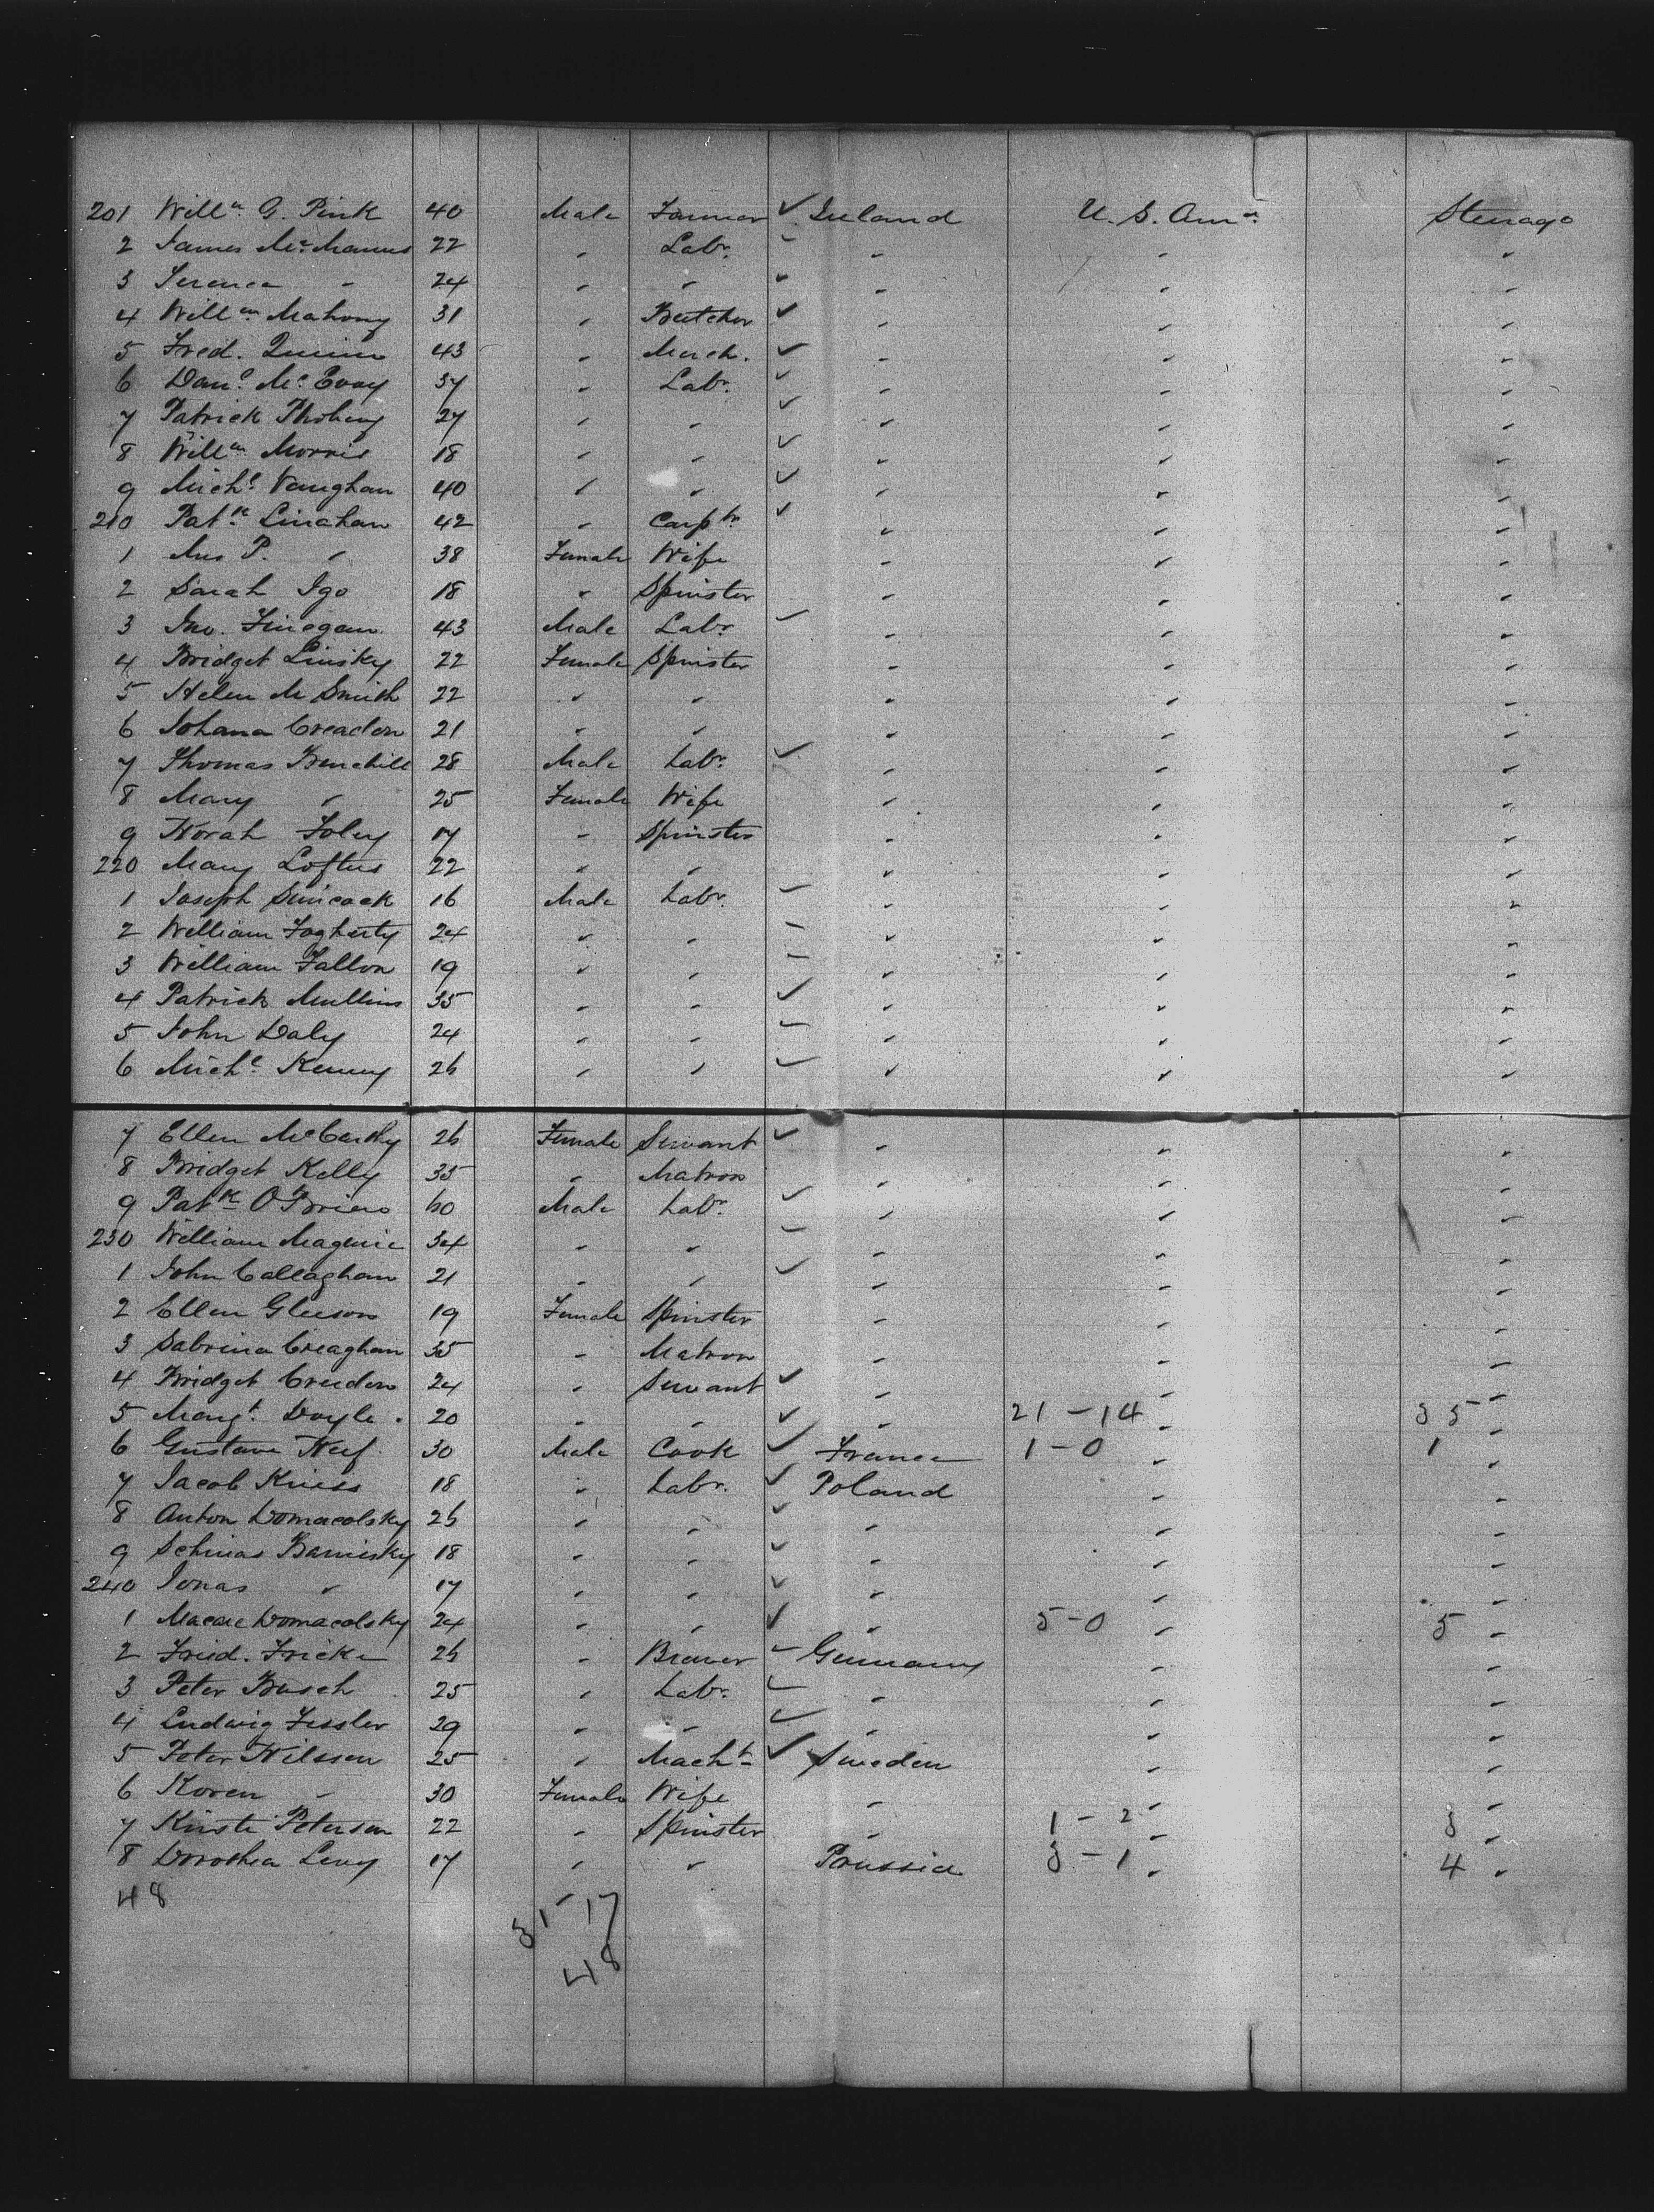 201 Willm. G. Pink 40 Male Farmer ✓ Ireland U. S. Ama. Steerage
2 James McManus 22 " Labr. " " "
3 Terence " 24 " " ✓ " " "
4 Willm. Mahony 31 " Butcher ✓ " " "
5 Fred. Quinn 43 " Merch. ✓ " " "
6 Danl. McEvoy 37 " Labr. ✓ " " "
7 Patrick 27 " " ✓ " " "
8 Willm. Morris 18 " " ✓ " " "
9 Michl. Vaughan 40 " " ✓ " " "
210 Patk. Linahan 42 " Carptr. ✓ " " "
1 Mrs P. " 38 Female Wife " " "
2 Sarah Igo 18 " Spinster " " "
3 Jno. Finegan 43 Male Labr. ✓ " " "
4 Bridget Linsky 22 Female Spinster " " "
5 Helen M Smith 22 " " " " "
6 Johana Creadon 21 " " " " "
7 Thomas 28 Male Labr. ✓ " " "
8 Mary " 25 Female Wife " " "
9 Norah Foley 17 " Spinster " " "
220 Mary Loftus 22 " " " " "
1 Joseph Simcock 16 Male Labr. ✓ " " "
2 William Fogherty 24 " " ✓ " " "
3 William Fallon 19 " " ✓ " " "
4 Patrick Mullins 35 " " ✓ " " "
5 John Daly 24 " " ✓ " " "
6 Michl. Kenny 26 " " ✓ " " "
7 Ellen McCarthy 26 Female Servant ✓ " " "
8 Bridget Kelly 35 " Matron " " "
9 Patk. O'Brien 60 Male Labr. ✓ " " "
230 William Maguire 34 " " ✓ " " "
1 John Callaghan 21 " " ✓ " " "
2 Ellen Gleeson 19 Female Spinster " " "
3 Sabrina Creaghan 35 " Matron " " "
4 Bridget Creedon 24 " Servant ✓ " " "
5 Margt. Doyle. 20 " " ✓ " 21-14 " 35 "
6 Gustave Neef 30 Male Cook ✓ France 1-0 " 1 "
7 Jacob Kriess 18 " Labr. ✓ Poland " "
8 Anton Domacolsky 26 " " ✓ " " "
9 18 " " ✓ " " "
240 Jonas " 17 " " ✓ " " "
1 Domacolsky 24 " " ✓ " 5-0 " 5 "
2 Fried. Fricke 26 " Brewer ✓ Germany " "
3 Peter Busch 25 " Labr. ✓ " " "
4 Ludwig Fessler 29 " " ✓ " " "
5 Peter Nilsson 25 " Macht. ✓ Sweden " "
6 Koren " 30 Female Wife " " "
7 Kirste Peterson 22 " Spinster " 1-2 " 3 "
8 Dorothea Levy 17 " " Prussia 3-1 " 4 "
48
31-17
48